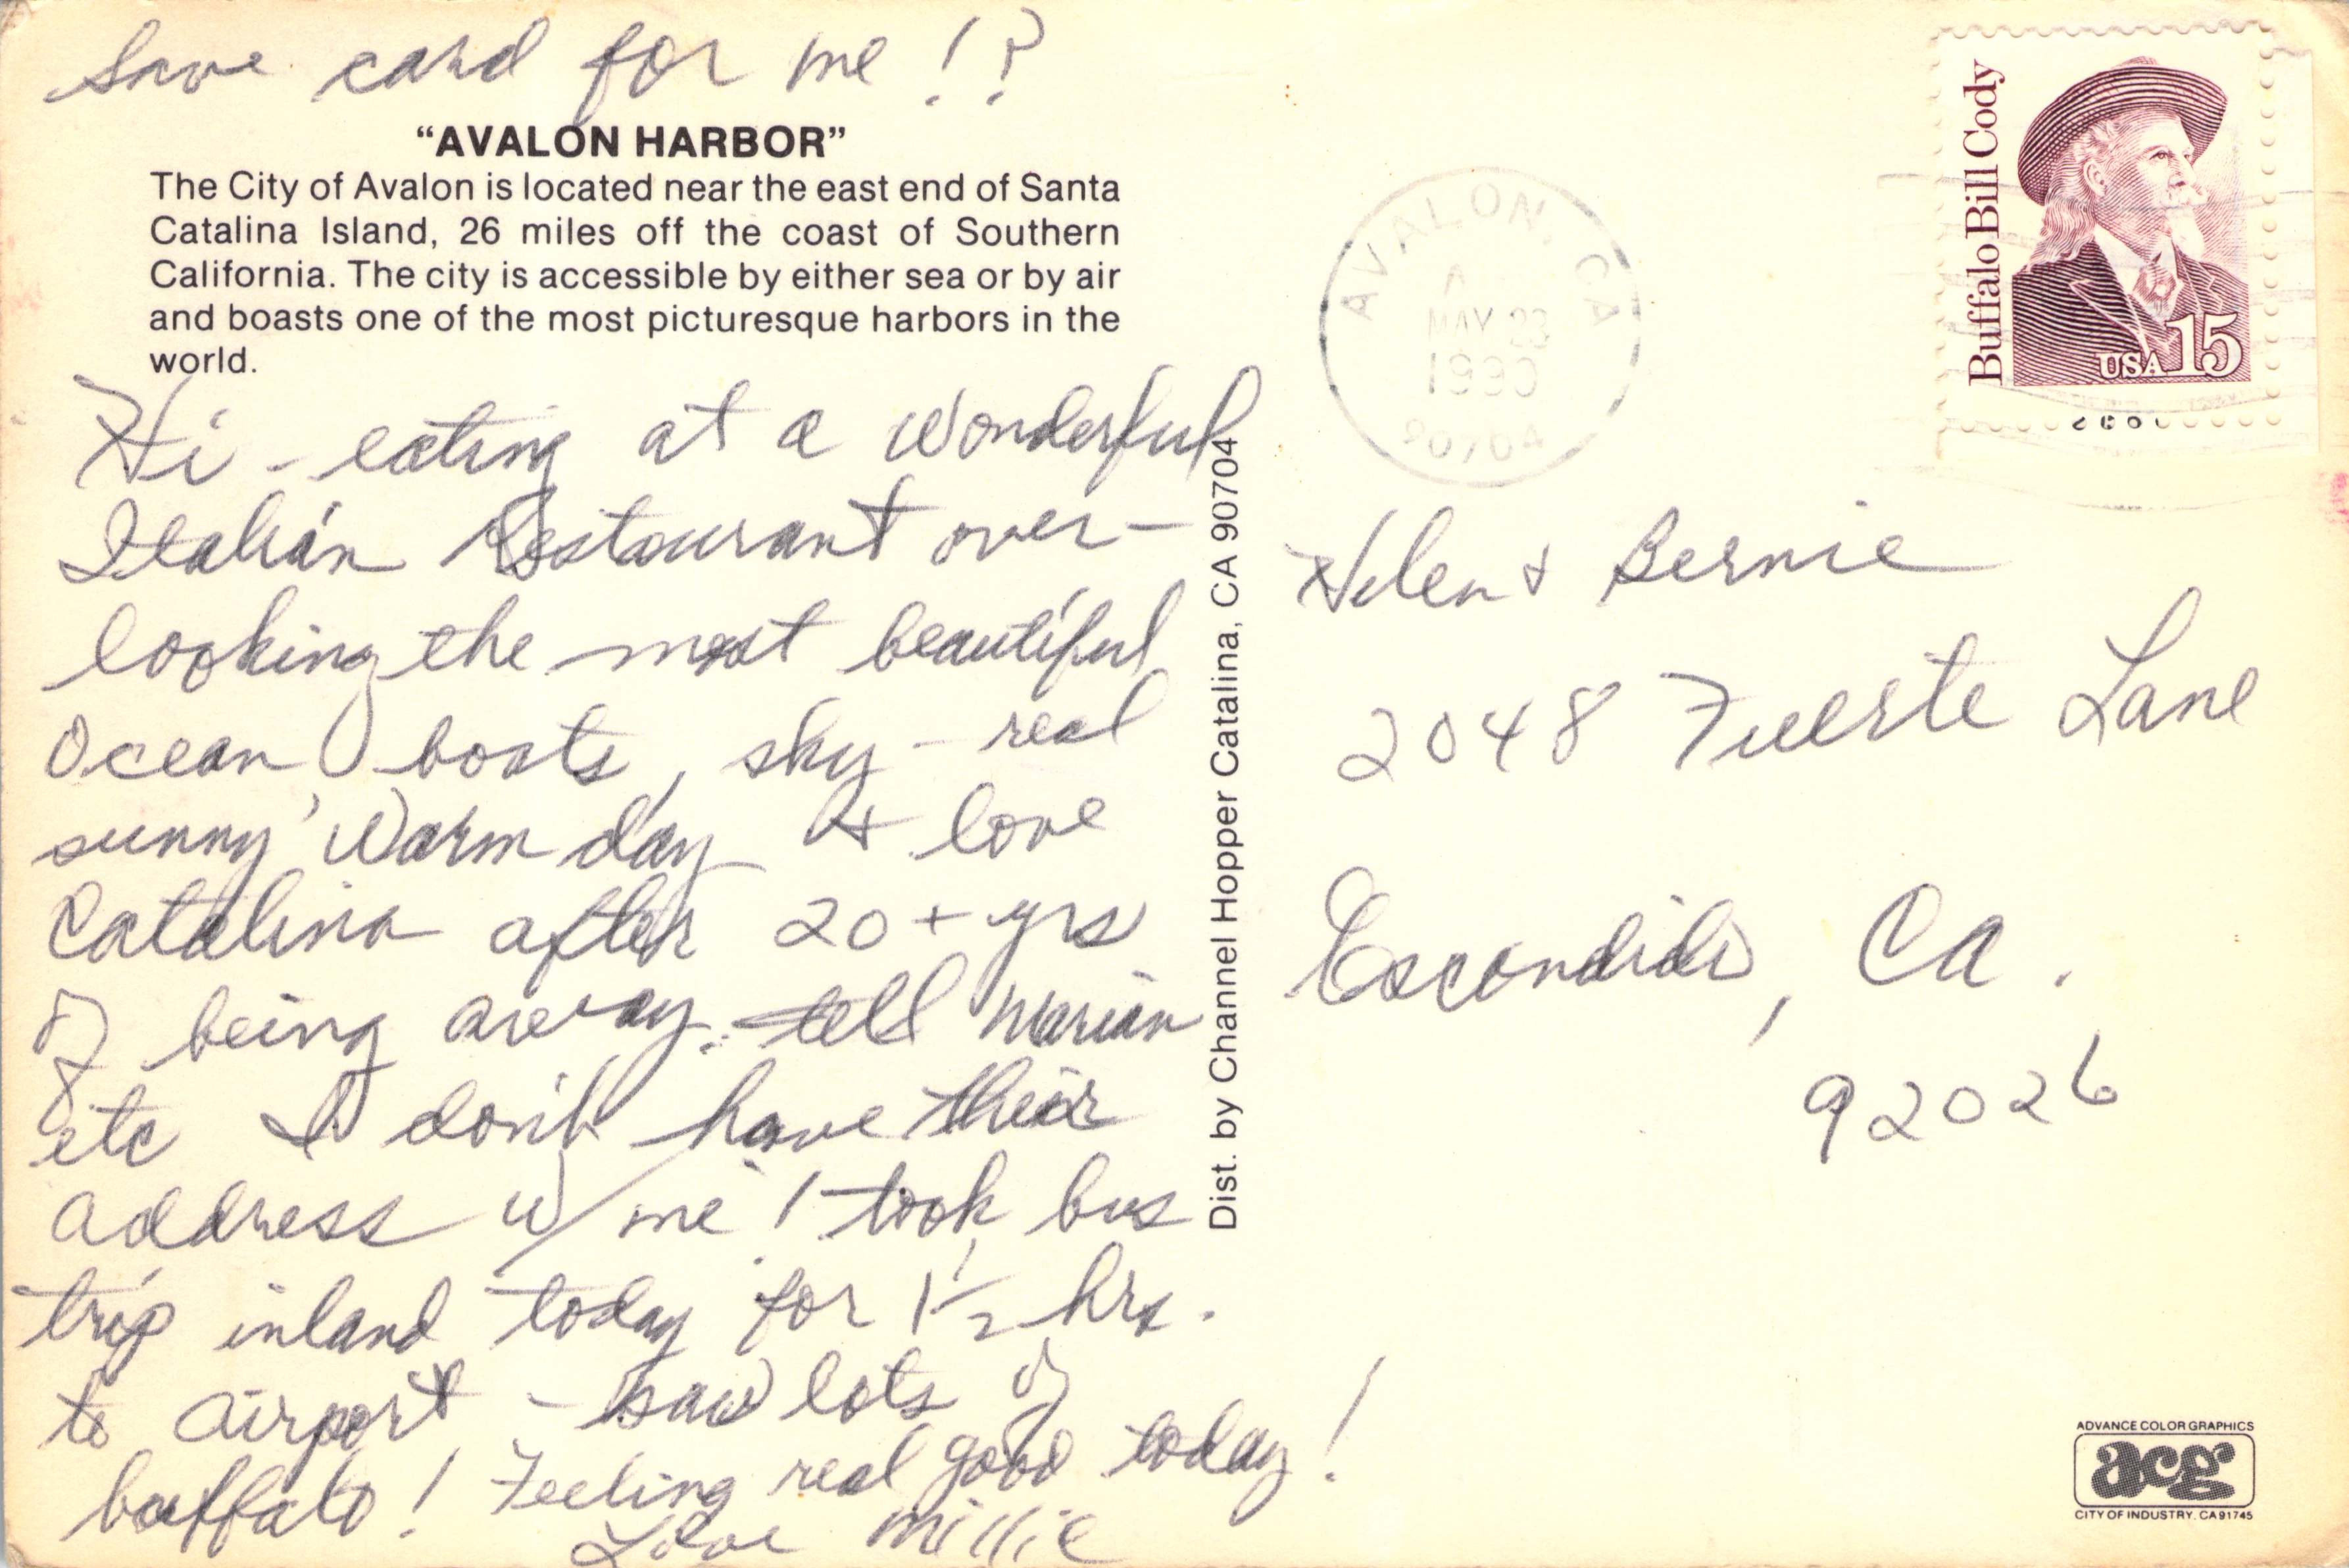 Save card for me!?
"AVALON HARBOR"
The City of Avalon is located near the east end of Santa
Catalina Island, 26 miles off the coast of Southern
California. The city is accessible by either sea or by air
and boasts one of the most picturesque harbors in the
world.
Hi - eating at a wonderful
Italian Restaurant over-
looking the most beautiful
Ocean, boats, sky - real
sunny, warm day & love
Catalina after 20+ yrs
of being away. tell Marian
etc I don't have their
address w/me! took bus
trip inland today for 1 1/2 hrs.
to airport - saw lots of
buffalo! Feeling real good today!
Love Millie
Dist. by Channel Hopper Catalina, CA 90704
AVALON, CA
MAY 23
1990
90704
Buffalo Bill Cody
USA 15
Helen & Bernie
2048 Fuerte Lane
Escondido, Ca.
92026
ADVANCE COLOR GRAPHICS
acg
CITY OF INDUSTRY, CA 91745